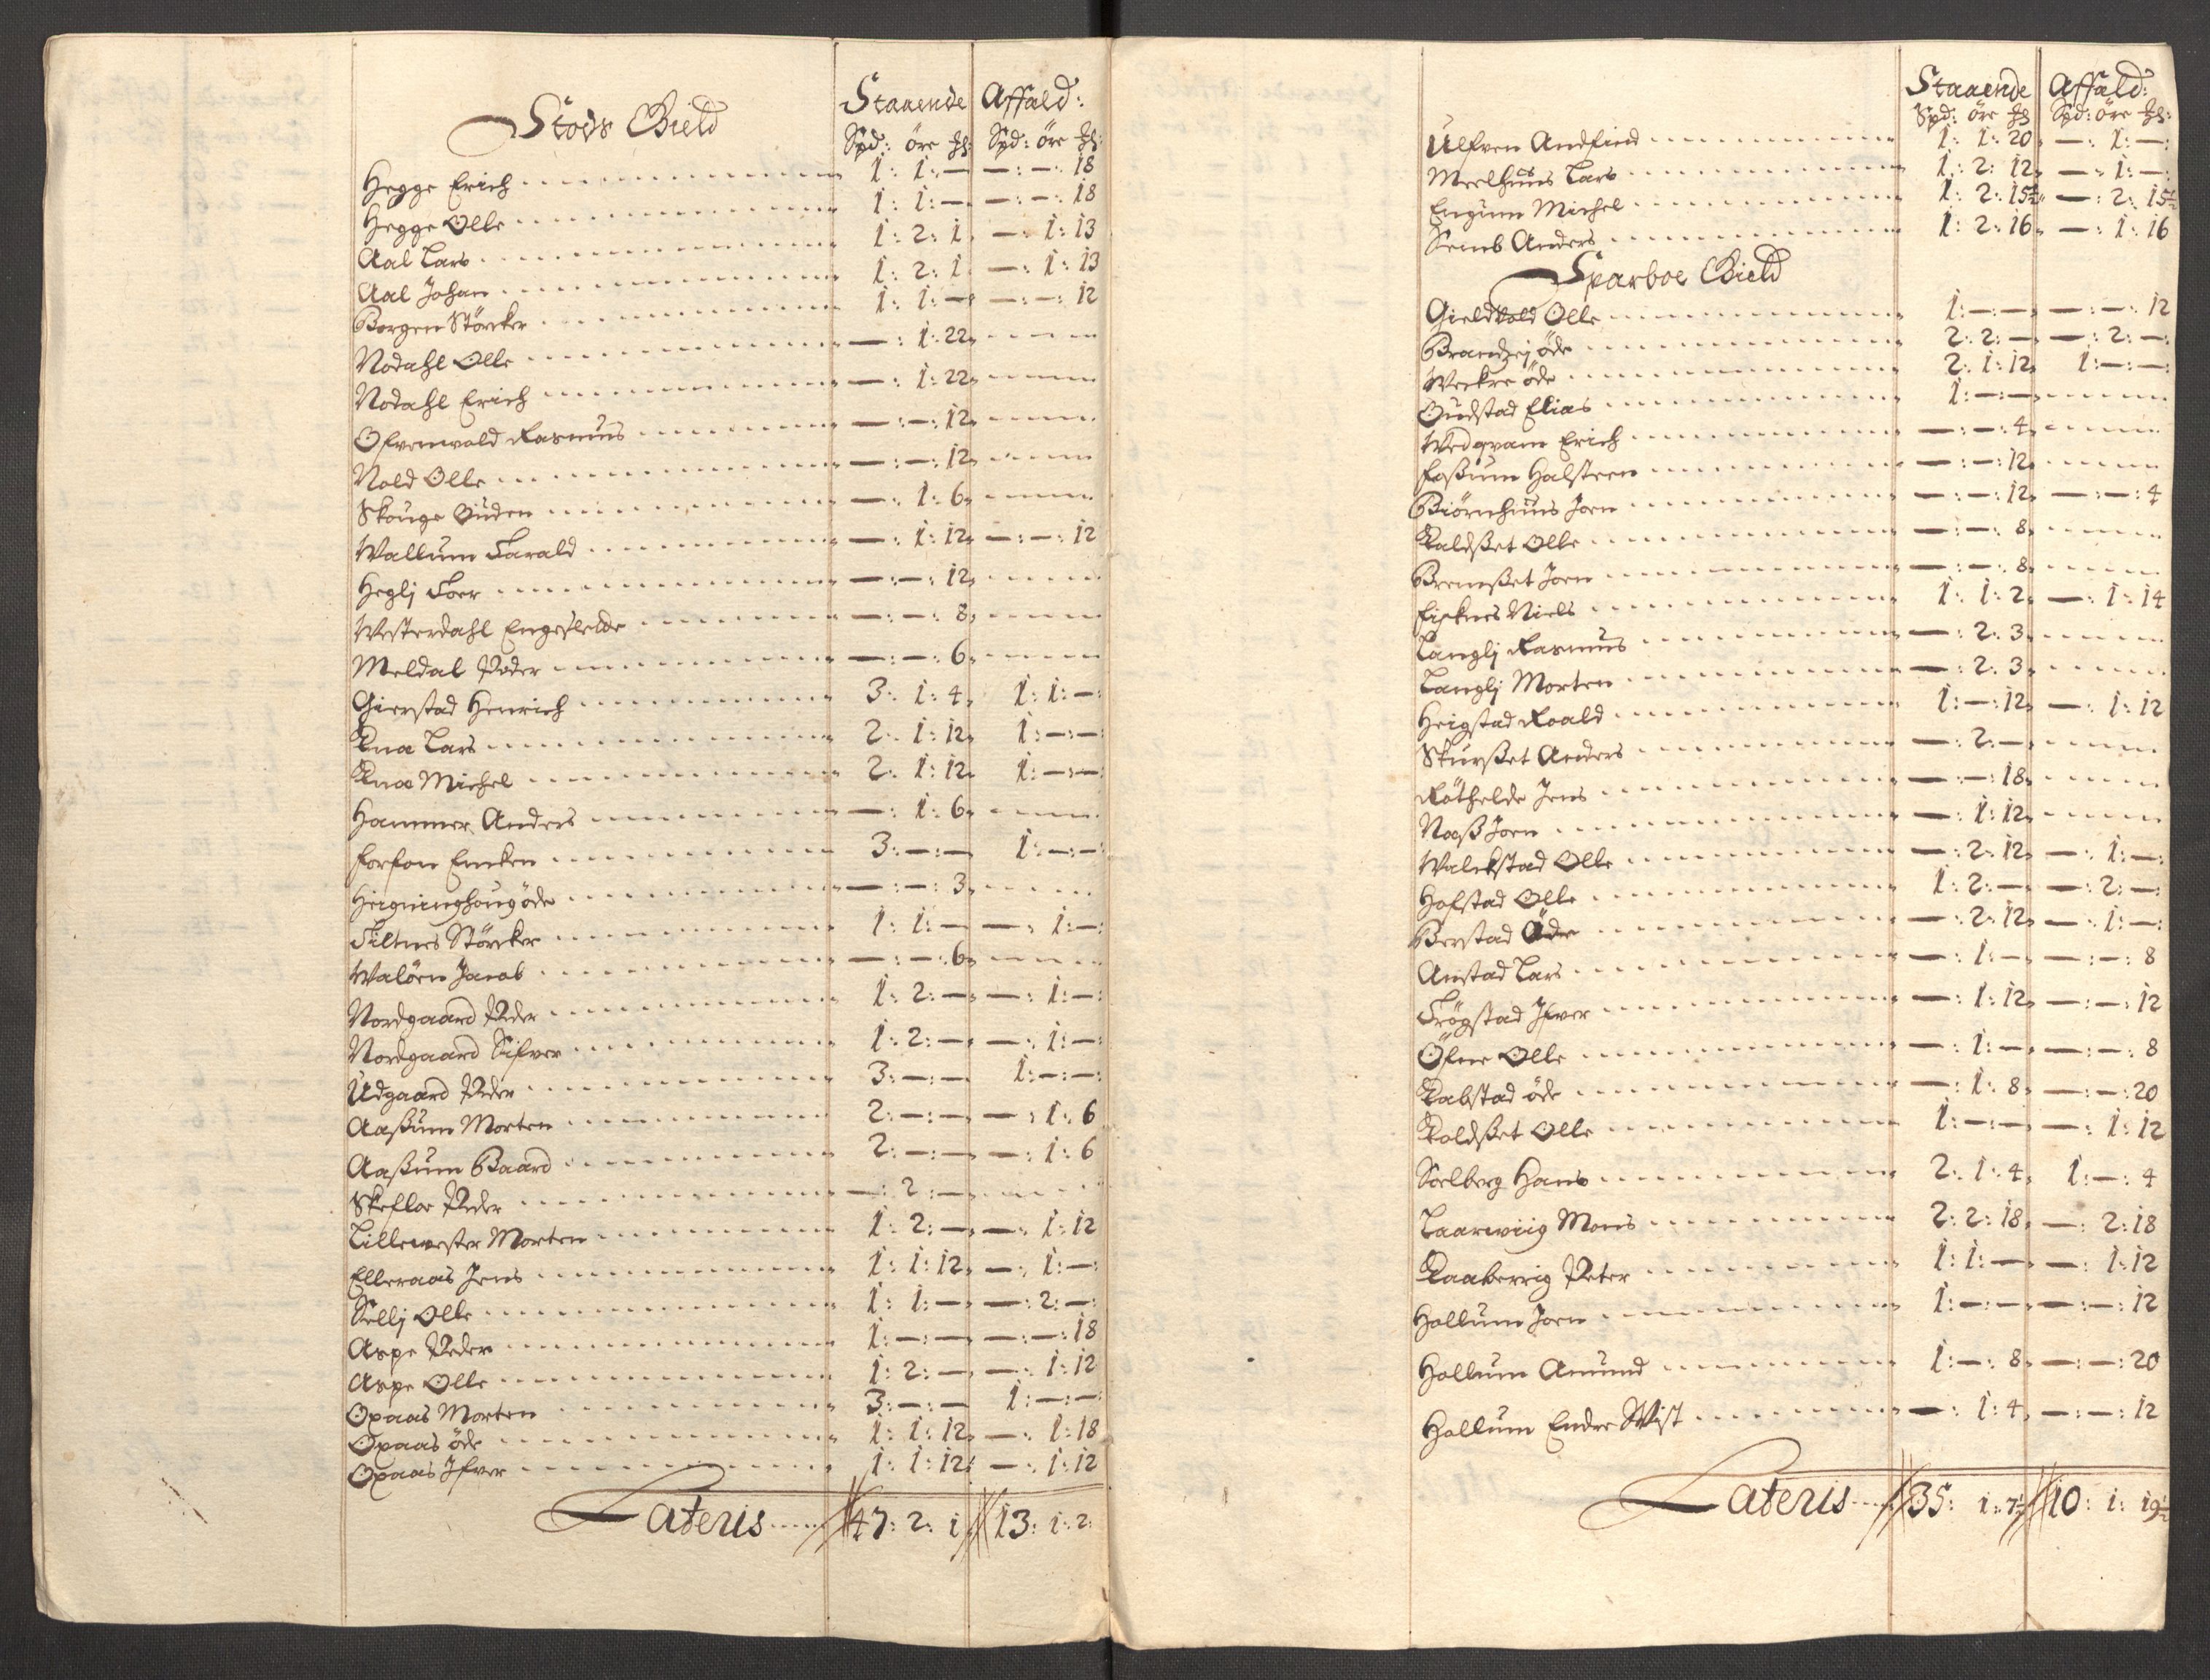 Stods Gield
Staaende Affald:
Spd: öre ß: Spd: öre ß:
Hegge Erich 1: 1: — — : — : 18
Hegge Olle 1: 1: — — : — : 18
Aal Lars 1: 2: 1 — : 1: 13
Aal Johan 1: 2: 1 — : 1: 13
Borgen Störcker 1: 1: — — : — : 12
Nodahl Olle — : 1: 22
Nodahl Erich — : 1: 22
Ofvenwald Rasmus — : — : 12
Nold Olle — : — : 12
Skouge Guden — : 1: 6
Wallum Tarald — : 1: 12 — : — : 12
Heglj Toer — : — : 12
Westerdahl — : — : 8
Meldal Peder — : — : 6
Gierstad Henrich 3: 1: 4 1: 1: —
Qua Lars 2: 1: 12 1: — : —
Qua Michel 2: 1: 12 1: — : —
Hammer Anders — : 1: 6
3: — : — 1: — : —
öde — : — : 3
Tiltnes Störcker 1: 1: — — : 1: —
Walöen Jacob — : — : 6
Nordgaard Peder 1: 2: — — : 1: —
Nordgaard Sifver 1: 2: — — : 1: —
Udgaard Peder 3: — : — 1: — : —
Aaßum Morten 2: — : — — : 1: 6
Aaßum Baard 2: — : — — : 1: 6
Skefloe Peder — : 2: —
Lillewester Morten 1: 2: — — : 1: 12
Elleraas Jens 1: 1: 12 — : 1: —
Sellj Olle 1: 1: — — : 2: —
Aspe Peder 1: — : — — : — : 18
Aspe Olle 1: 2: — — : 1: 12
Opaas Morten 3: — : — 1: — : —
Opaas öde 1: 1: 12 — : 1: 18
Opaas Ifver 1: 1: 12 — : 1: 12
Lateris 47: 2: 1 13: 1: 2:
Staaende Affald:
Spd: öre ß Spd: öre ß:
Ulfven Andfind 1: 1: 20 — : 1: —
Meelhuus Lars 1: 2: 12 — : 1: —
Engum Michel 1: 2: 15½ — : 2: 15½
Semb Anders 1: 2: 16 — : 1: 16
Sparboe Gield
Gieldvold Olle 1: — : — — : — : 12
öde 2: 2: — — : 2: —
Werkre öde 2: 1: 12 1: — : —
Gudstad Elias 1: — : —
Wedqvam Erich — : — : 4
Foßum Halsteen — : — : 12
Biörnhuus Joen — : — : 12 — : — : 4
Kaldßet Olle — : — : 8
Bremßet Joen — : — : 8
Fisknes Niels 1: 1: 2 — : 1: 14
Langlj Rasmus — : 2: 3
Langlj Morten — : 2: 3
Heigstad Roald 1: — : 12 — : 1: 12
Skurßet Anders — : 2: —
Röthelde Jens — : — : 18
Naß Joen — : 1: 12
Walekstad Olle — : 2: 12 — : 1: —
Hofstad Olle 1: 2: — — : 2: —
Berstad Öde — : 2: 12 — : 1: —
Anstad Lars — : 1: — — : — : 8
Trögstad Ifver — : 1: 12 — : — : 12
Öfne Olle — : 1: — — : — : 8
Kabstad öde — : 1: 8 — : — : 20
Koldßet Olle 1: — : — — : 1: 12
Soelberg Hans 2: 1: 4 1: — : 4
Laarwiig Mons 2: 2: 18 — : 2: 18
Kaaberrig Peter 1: 1: — — : 1: 12
Hollum Joen 1: — : — — : — : 12
Hollum Amund 1: — : 8 — : — : 20
Hollum Endre Wist — : 1: 4 — : — : 12
Lateris 35: 1: 7½ 10: 1: 19½